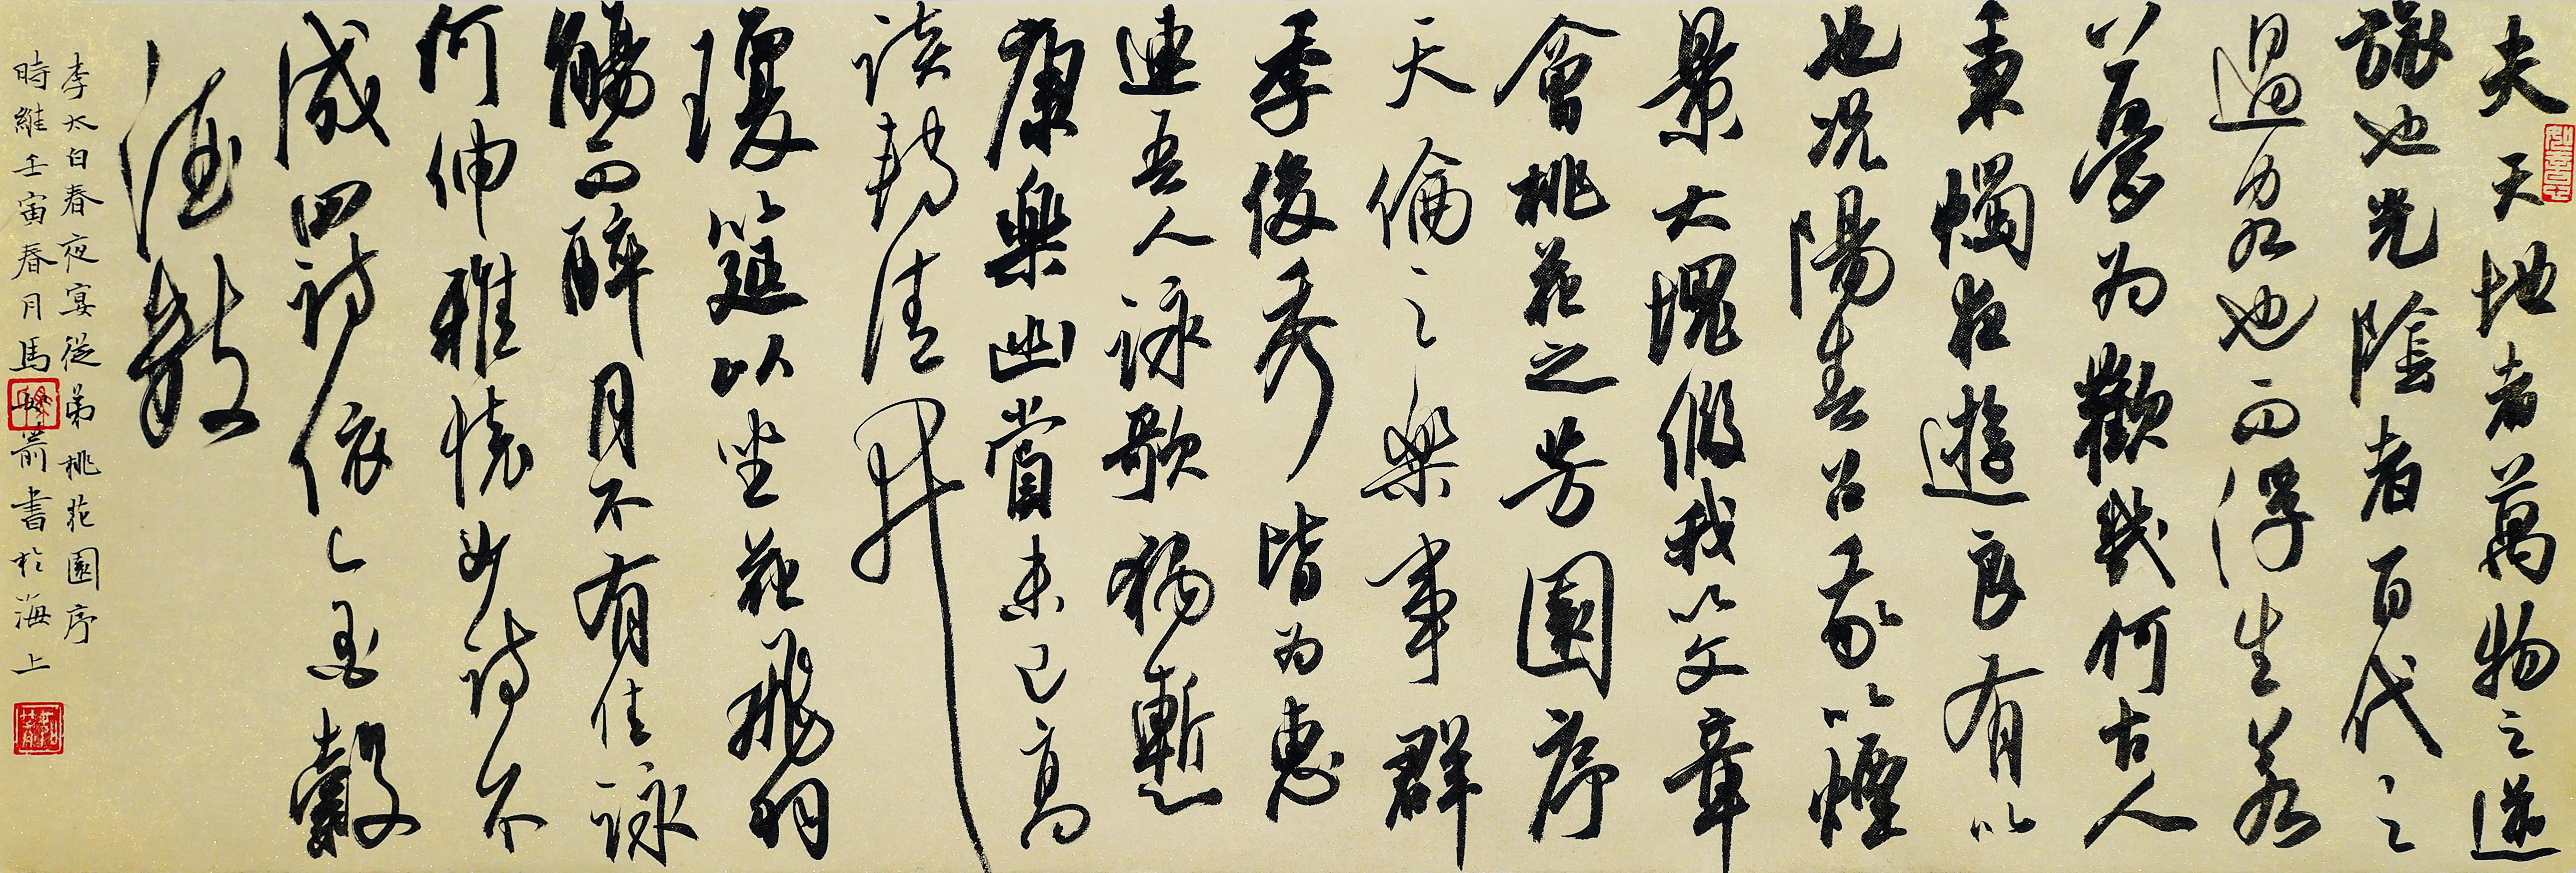 夫天地者萬物之逆
旅也光陰者百代之
過客也而浮生若
夢為歡幾何古人
秉燭夜遊良有以
也況陽春召我以煙
景大塊假我以文章
會桃花之芳園序
天倫之樂事群
季俊秀皆為惠
連吾人詠歌獨慚
康樂幽賞未已高
談轉清開
瓊筵以坐花飛羽
觴而醉月不有佳詠
何伸雅懷如詩不
成罰依金穀
酒數
李太白春夜宴從弟桃花園序
時維壬寅春月馬箭書於海上